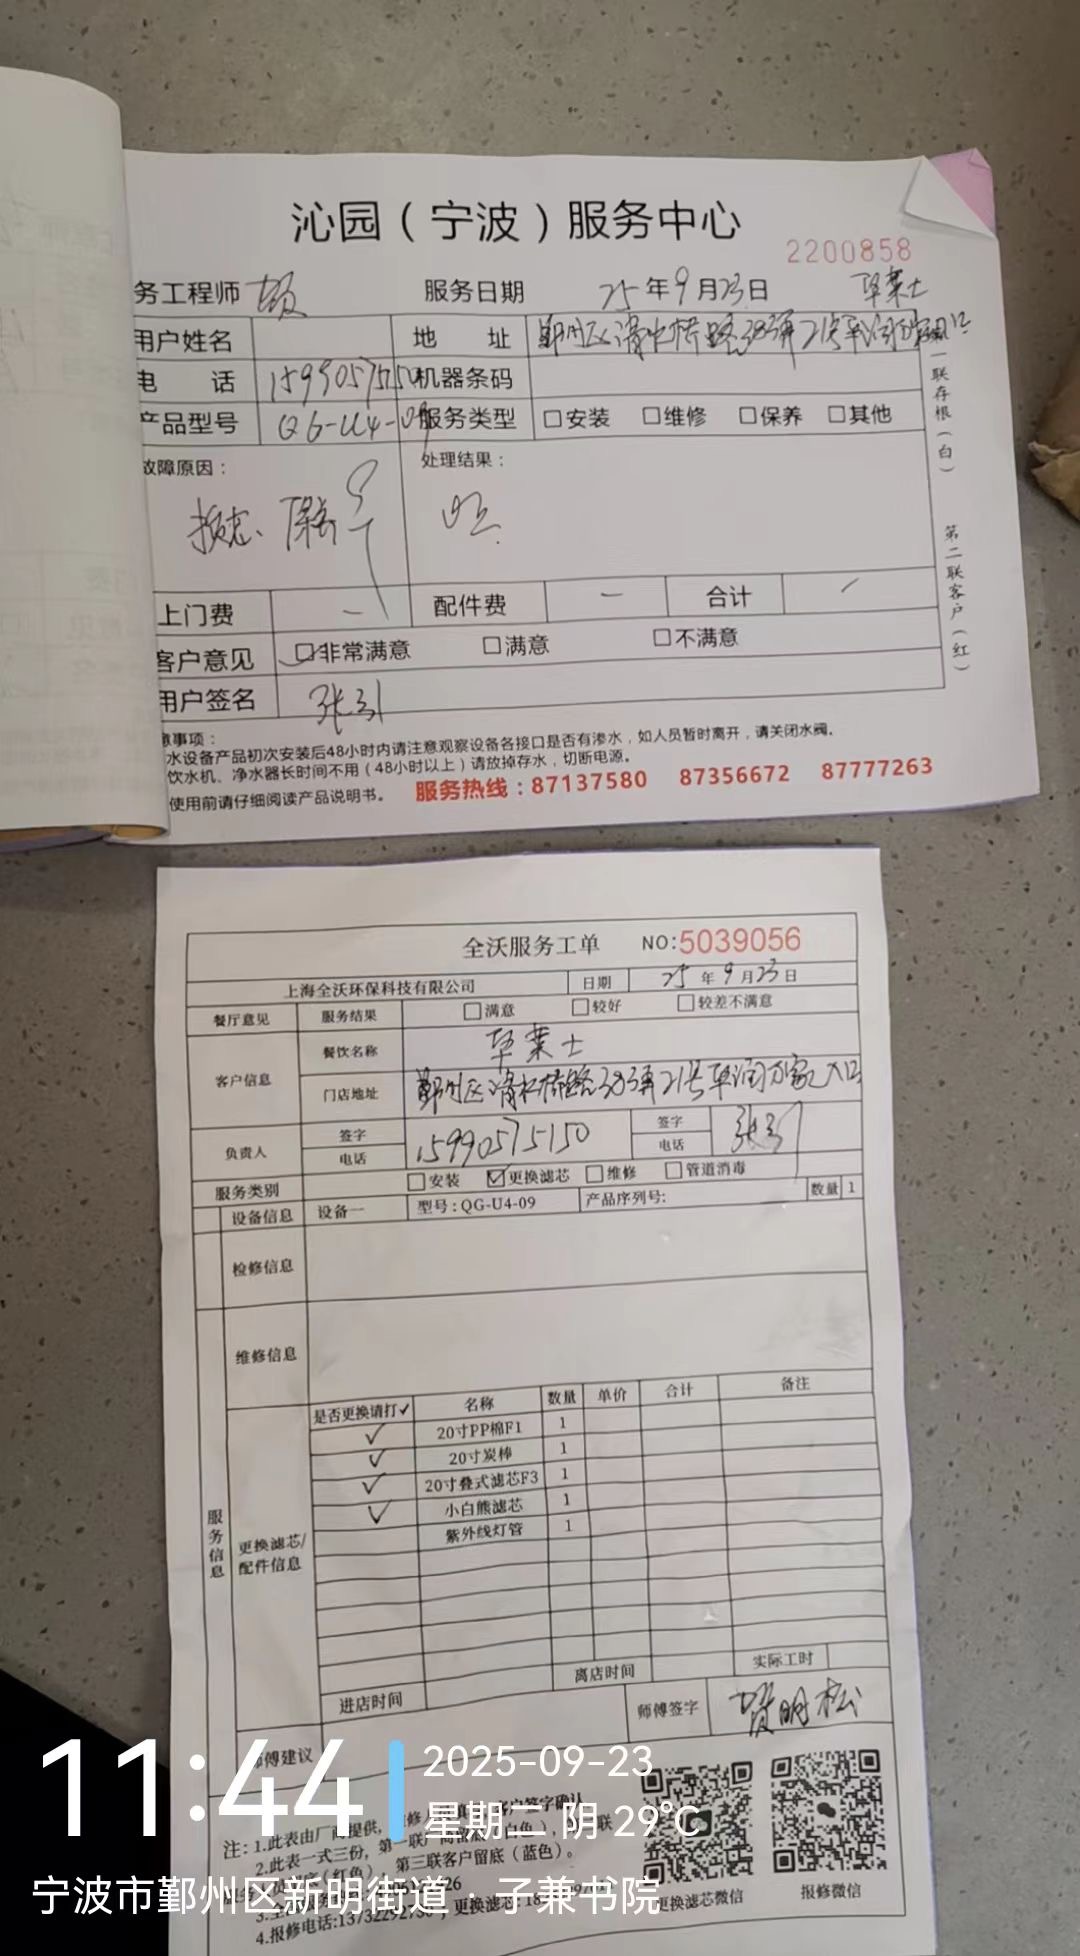 沁园（宁波）服务中心
2200858
务工程师
服务日期 25年9月23日 毕業士
用户姓名 地 址
电 话 15990575150 机器条码
产品型号 QG-U4-09 服务类型 □安装 □维修 □保养 □其他
故障原因： 处理结果：
上门费 — 配件费 — 合计
客户意见 □非常满意 □满意 □不满意
用户签名
一联存根（白） 第二联客户（红）
意事项：
水设备产品初次安装后48小时内请注意观察设备各接口是否有渗水，如人员暂时离开，请关闭水阀。
饮水机、净水器长时间不用（48小时以上）请放掉存水，切断电源。
使用前请仔细阅读产品说明书。 服务热线：87137580 87356672 87777263
全沃服务工单 NO:5039056
上海全沃环保科技有限公司 日期 25年9月23日
餐厅意见 服务结果 □满意 □较好 □较差不满意
客户信息 餐饮名称 毕業士
门店地址 鄞州区清水桥路38弄21号华润万家入口
负责人 签字 电话 15990575150 签字 电话
服务类别 □安装 ☑更换滤芯 □维修 □管道消毒
设备信息 设备一 型号:QG-U4-09 产品序列号: 数量 1
检修信息
维修信息
服务信息
更换滤芯/配件信息
是否更换请打✓ 名称 数量 单价 合计 备注
✓ 20寸PP棉F1 1
✓ 20寸炭棒 1
✓ 20寸叠式滤芯F3 1
✓ 小白熊滤芯 1
紫外线灯管 1
进店时间 离店时间 实际工时
师傅建议 师傅签字
注: 1.此表由厂商提供, 客户签字确认
2.此表一式三份,
(红色), 第三联客户留底 (蓝色)。
4.报修电话: 更换滤芯:
更换滤芯微信 报修微信
11:44
2025-09-23
星期二 阴 29℃
宁波市鄞州区新明街道·子兼书院